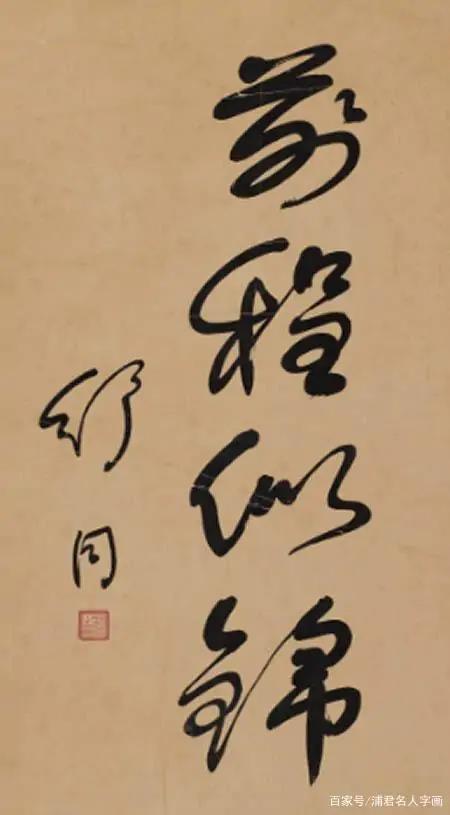 前程似锦
舒同
百家号/浦君名人字画